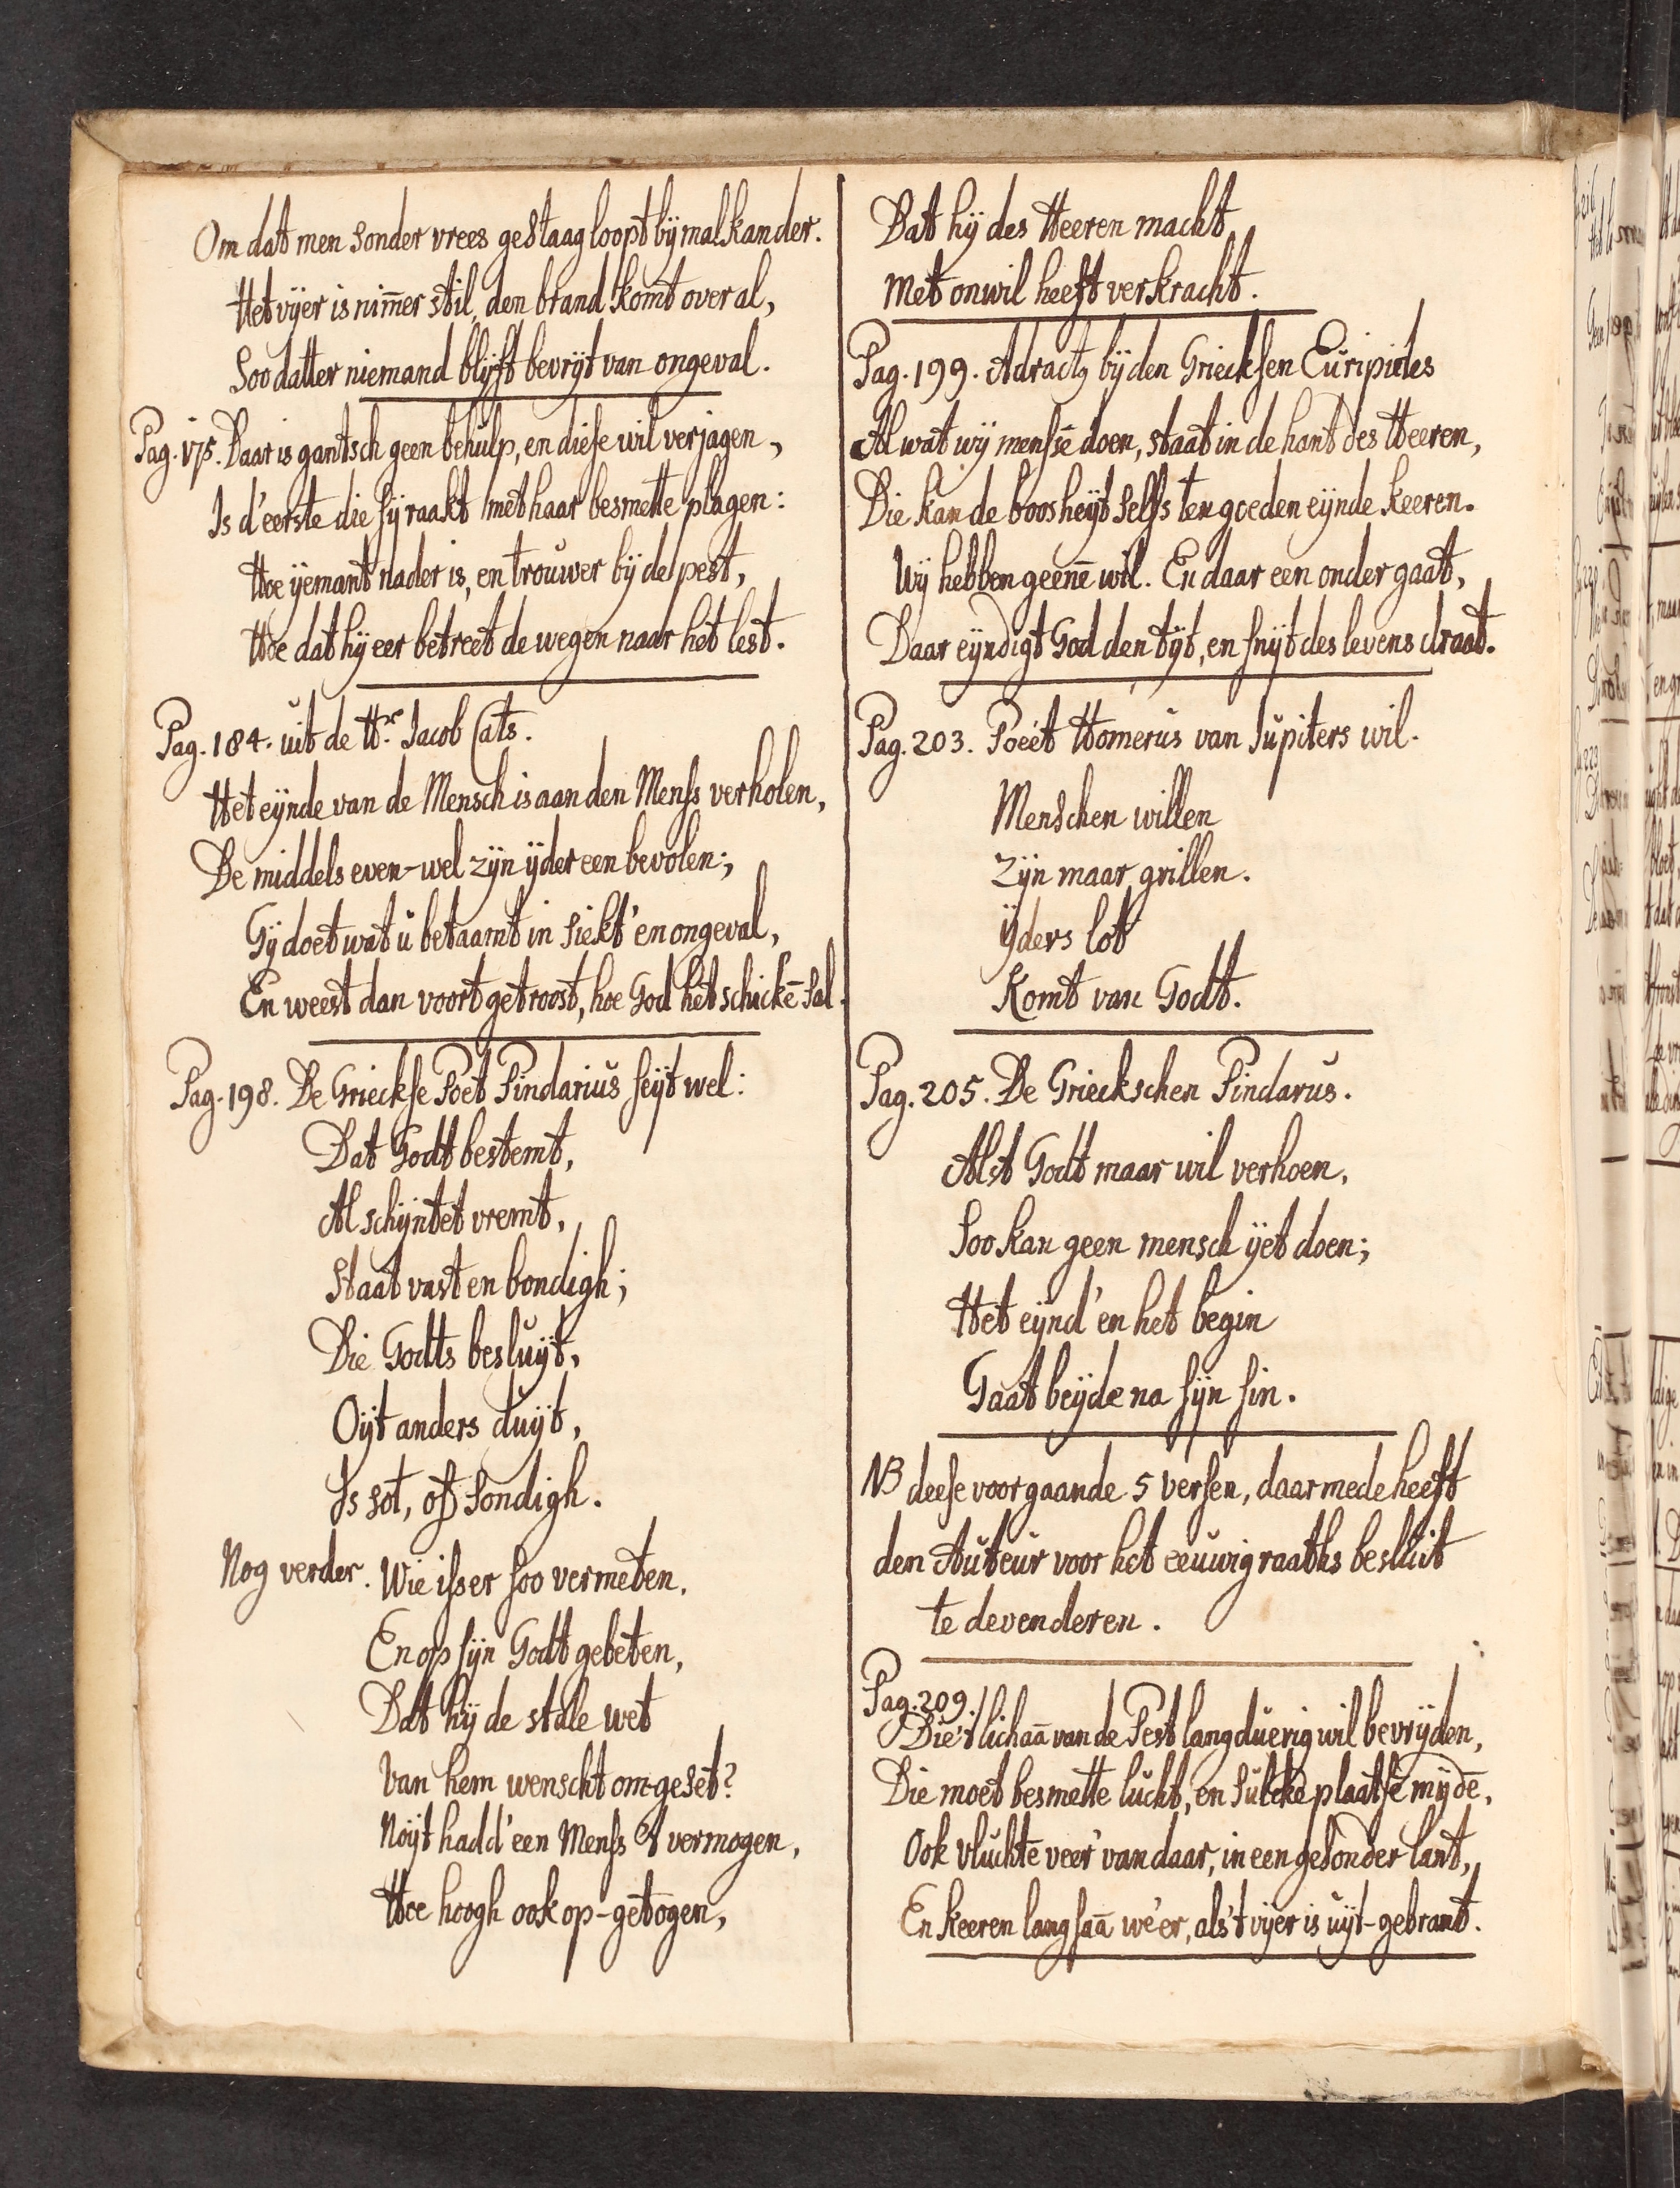 Om dat men sonder vrees gestaag loopt bij malkander.
Het vijer is nim̄er stil, den brand komt over al,
Soo datter niemand blijft bevrijt van ongeval.
Pag. 175. Daar is gantsch geen behulp, en diese wil verjagen,
Is d'eerste die sij raakt met haar besmette plagen:
Hoe ijemant nader is, en trouwer bij de pest,
Hoe dat hij eer betreet de wegen naar het lest.
Pag. 184. uit de Hr. Jacob Cats.
Het eijnde van de Mensch is aan den Menss verholen,
De middels even-wel zijn ijder een bevolen;
Gij doet wat u betaamt in siekt' en ongeval,
En weest dan voort getroost, hoe God het schickē sal.
Pag. 198. De Grieckse Poet Pindarius seijt wel:
Dat Godt bestemt,
Al schijntet vremt,
Staat vast en bondigh;
Die Godts besluijt,
Oijt anders duijt,
Is sot, of sondigh.
Nog verder. Wie isser soo vermeten,
En op sijn Godt gebeten,
Dat hij de stale wet
Van hem wenscht om-geset?
Noijt hadd' een Menss 't vermogen,
Hoe hoogh ook op-getogen,
Dat hij des Heeren macht
Met onwil heeft verkracht.
Pag. 199. Adract9 bij den Griecksen Euripides
Al wat wij menssē doen, staat in de hant des Heeren,
Die kan de boosheijt selfs ten goeden eijnde keeren.
Wij hebben geenē wil. En daar een onder gaat,
Daar eijndigt God den tijt, en snijt des levens draat.
Pag. 203. Poeët Homerus van Jupiters wil.
Menschen willen
Zijn maar grillen.
Yders lot
Komt van Godt.
Pag. 205. De Grieckschen Pindarus.
Alst Godt maar wil verhoen,
Soo kan geen mensch ijet doen;
Het eijnd' en het begin
Gaat beijde na sijn sin.
NB deese voorgaande 5 versen, daar mede heeft
den Auteur voor het eeuwig raaths besluit
te devenderen.
Pag. 209.
Die't lichaā van de Pest langduerig wil bevrijden,
Die moet besmette lucht, en sulcke plaatsē mijdē,
Ook vluchte veer van daar, in een gesonder lant,
En keeren langsaā we'er, als 't vijer is uijt-gebrant.